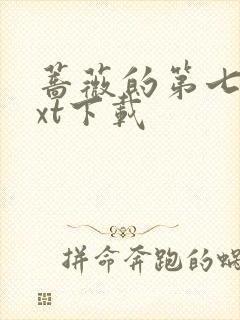 蔷薇的第七
xt下载
拼命奔跑的蜗